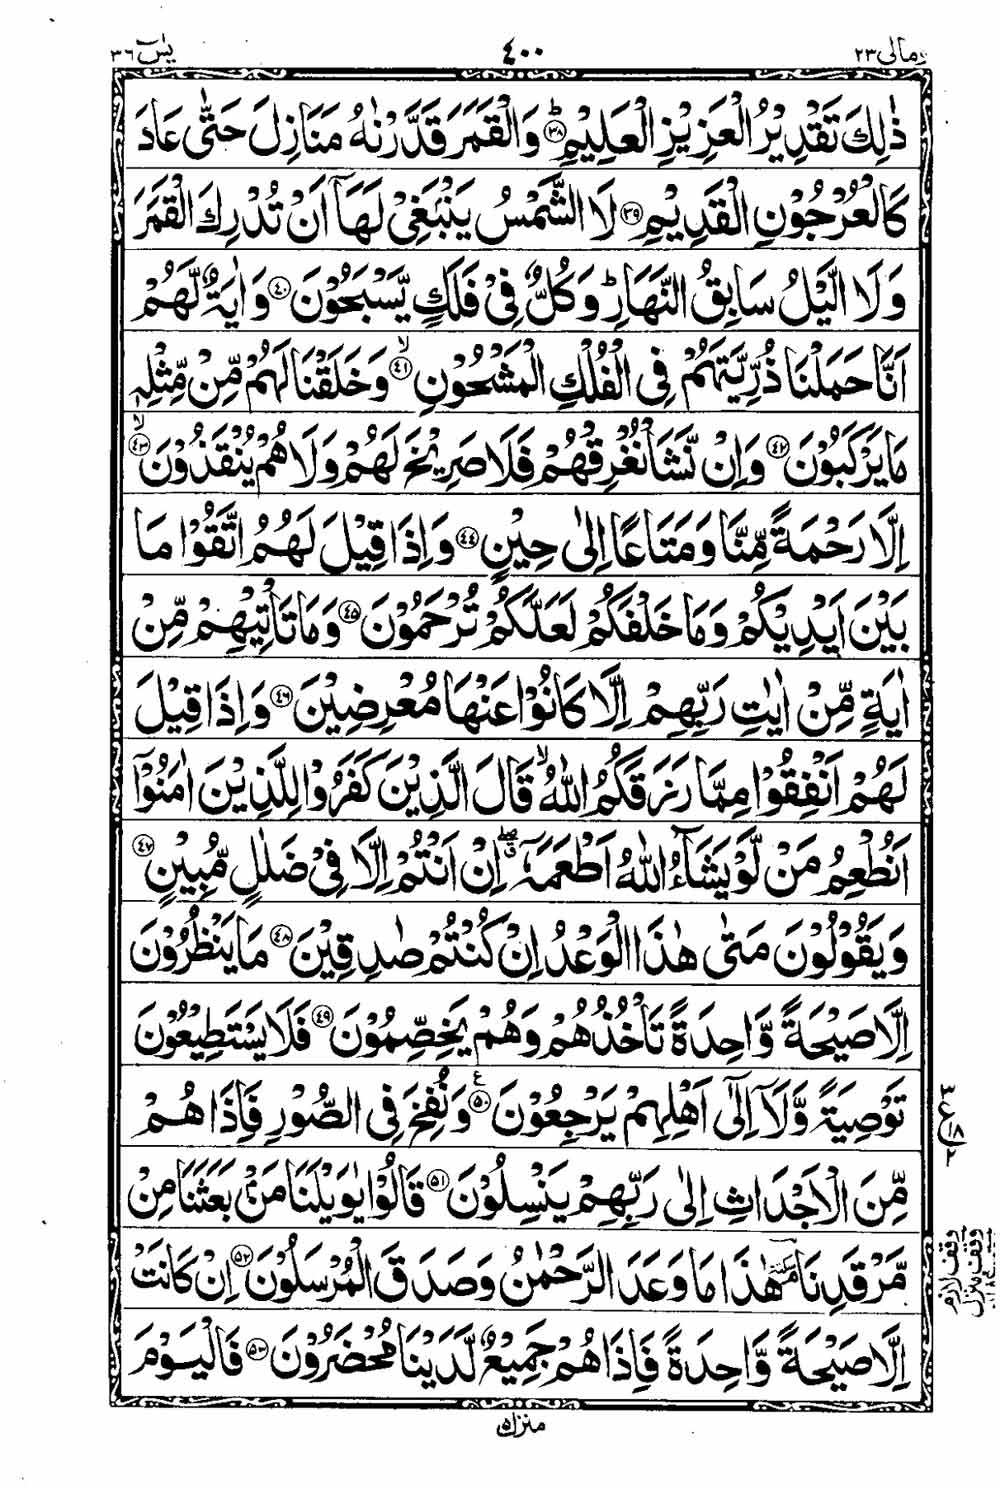 ومالی ۲۳ ۴۰۰ یٰسٓ ۳۶
ذٰلِكَ تَقْدِيْرُ الْعَزِيْزِ الْعَلِيْمِؕ ۳۸ وَالْقَمَرَ قَدَّرْنٰهُ مَنَازِلَ حَتّٰى عَادَ
كَالْعُرْجُوْنِ الْقَدِيْمِ ۳۹ لَا الشَّمْسُ يَنْۢبَغِىْ لَهَاۤ اَنْ تُدْرِكَ الْقَمَرَ
وَلَا الَّيْلُ سَابِقُ النَّهَارِؕ وَكُلٌّ فِىْ فَلَكٍ يَّسْبَحُوْنَ ۴۰ وَاٰيَةٌ لَّهُمْ
اَنَّا حَمَلْنَا ذُرِّيَّتَهُمْ فِى الْفُلْكِ الْمَشْحُوْنِۙ ۴۱ وَخَلَقْنَا لَهُمْ مِّنْ مِّثْلِهٖ
مَا يَرْكَبُوْنَ ۴۲ وَاِنْ نَّشَاْ نُغْرِقْهُمْ فَلَا صَرِيْخَ لَهُمْ وَلَا هُمْ يُنْقَذُوْنَۙ ۴۳
اِلَّا رَحْمَةً مِّنَّا وَمَتَاعًا اِلٰى حِيْنٍ ۴۴ وَاِذَا قِيْلَ لَهُمُ اتَّقُوْا مَا
بَيْنَ اَيْدِيْكُمْ وَمَا خَلْفَكُمْ لَعَلَّكُمْ تُرْحَمُوْنَ ۴۵ وَمَا تَاْتِيْهِمْ مِّنْ
اٰيَةٍ مِّنْ اٰيٰتِ رَبِّهِمْ اِلَّا كَانُوْا عَنْهَا مُعْرِضِيْنَ ۴۶ وَاِذَا قِيْلَ
لَهُمْ اَنْفِقُوْا مِمَّا رَزَقَكُمُ اللّٰهُۙ قَالَ الَّذِيْنَ كَفَرُوْا لِلَّذِيْنَ اٰمَنُوْۤا
اَنُطْعِمُ مَنْ لَّوْ يَشَآءُ اللّٰهُ اَطْعَمَهٗۤ ۖ اِنْ اَنْتُمْ اِلَّا فِىْ ضَلٰلٍ مُّبِيْنٍ ۴۷
وَيَقُوْلُوْنَ مَتٰى هٰذَا الْوَعْدُ اِنْ كُنْتُمْ صٰدِقِيْنَ ۴۸ مَا يَنْظُرُوْنَ
اِلَّا صَيْحَةً وَّاحِدَةً تَاْخُذُهُمْ وَهُمْ يَخِصِّمُوْنَ ۴۹ فَلَا يَسْتَطِيْعُوْنَ
تَوْصِيَةً وَّلَاۤ اِلٰٓى اَهْلِهِمْ يَرْجِعُوْنَ ۵۰ ع وَنُفِخَ فِى الصُّوْرِ فَاِذَا هُمْ
۳ ع ۱۸ ۲
مِّنَ الْاَجْدَاثِ اِلٰى رَبِّهِمْ يَنْسِلُوْنَ ۵۱ قَالُوْا يٰوَيْلَنَا مَنْۢ بَعَثَنَا مِنْ
مَّرْقَدِنَا ۘ سكتة هٰذَا مَا وَعَدَ الرَّحْمٰنُ وَصَدَقَ الْمُرْسَلُوْنَ ۵۲ اِنْ كَانَتْ
وقف لازم
وقف منزل
اِلَّا صَيْحَةً وَّاحِدَةً فَاِذَا هُمْ جَمِيْعٌ لَّدَيْنَا مُحْضَرُوْنَ ۵۳ فَالْيَوْمَ
منزل ۵